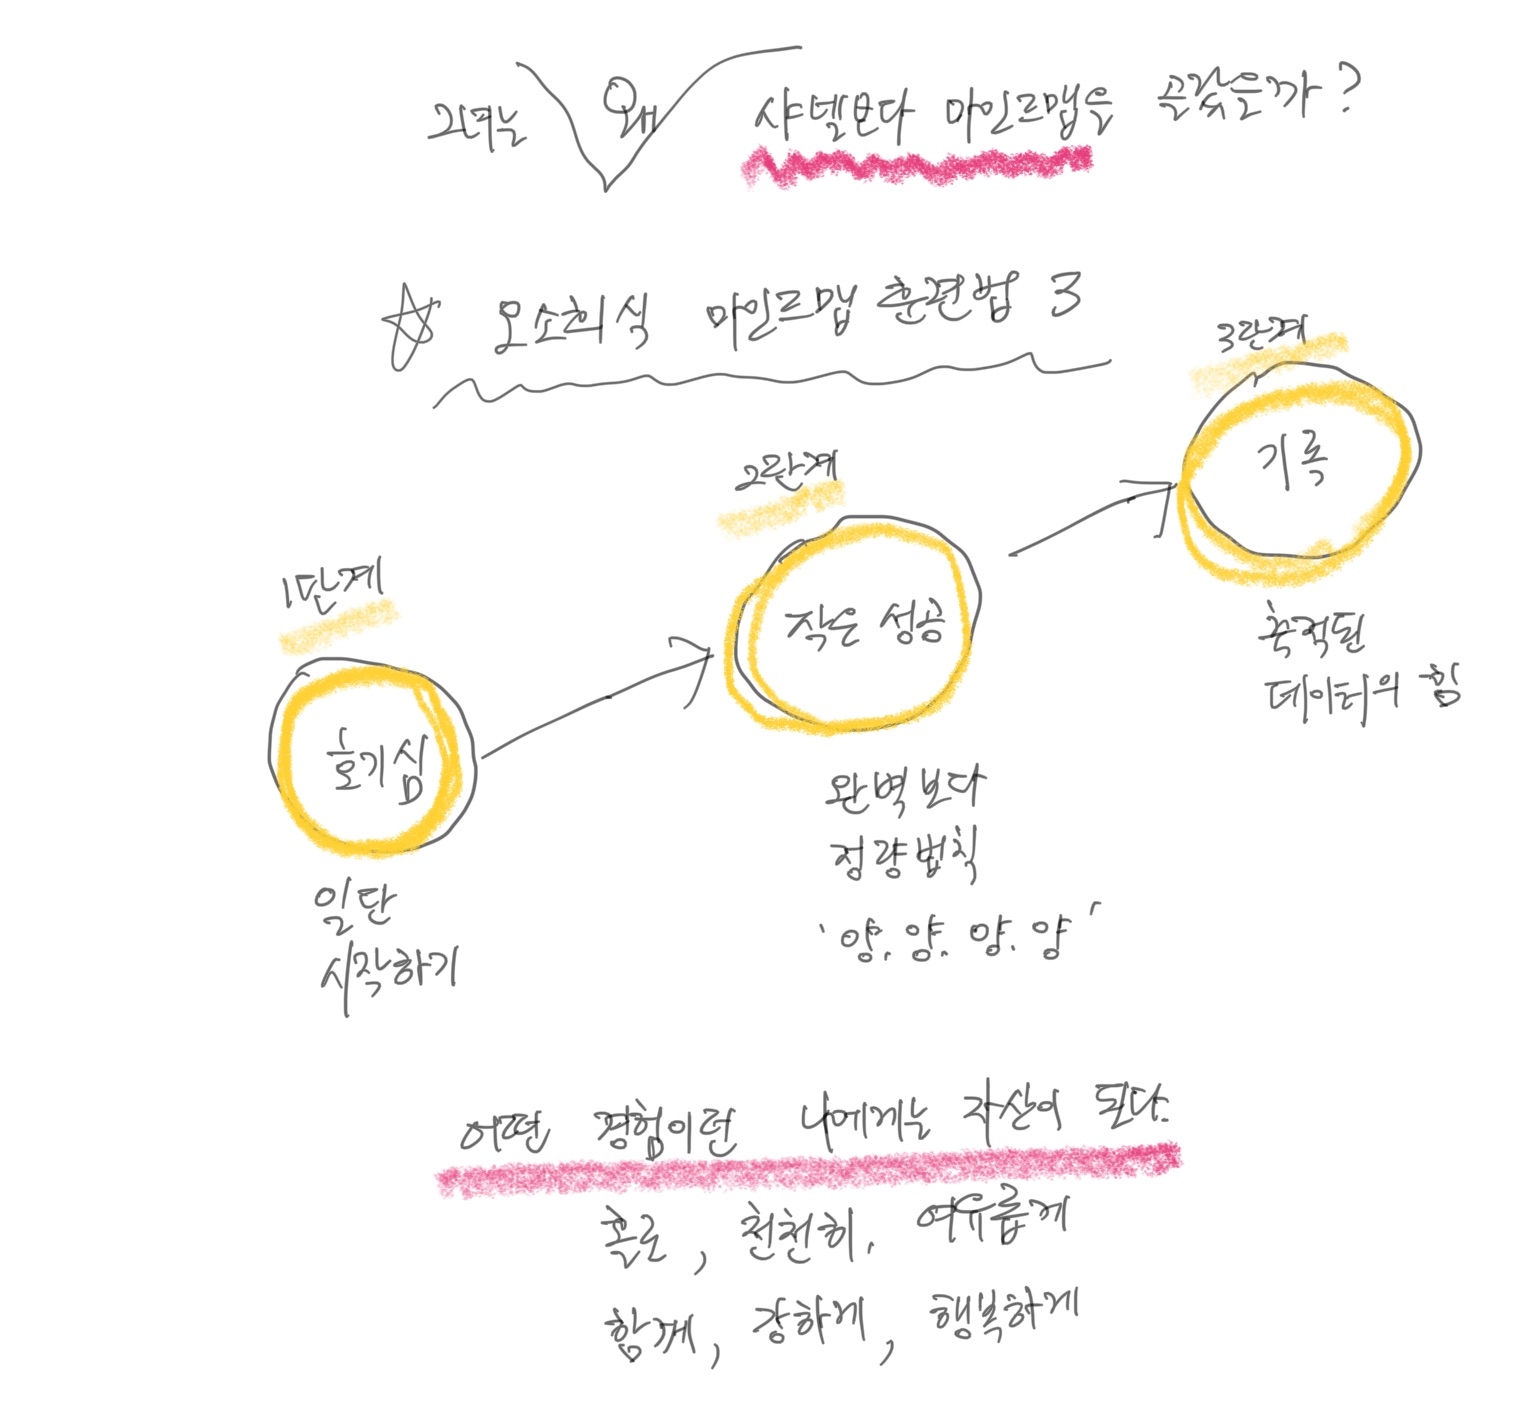 그녀는 왜 샤넬보다 마인드맵을 골랐을까?
☆ 오소희식 마인드맵 훈련법 3
1단계
호기심
일단
시작하기
2단계
작은 성공
완벽보다
정량법칙
'양. 양. 양. 양'
3단계
기록
축적된
데이터의 힘
어떤 경험이던 나에게는 자산이 된다.
홀로, 천천히, 여유롭게
함께, 강하게, 행복하게